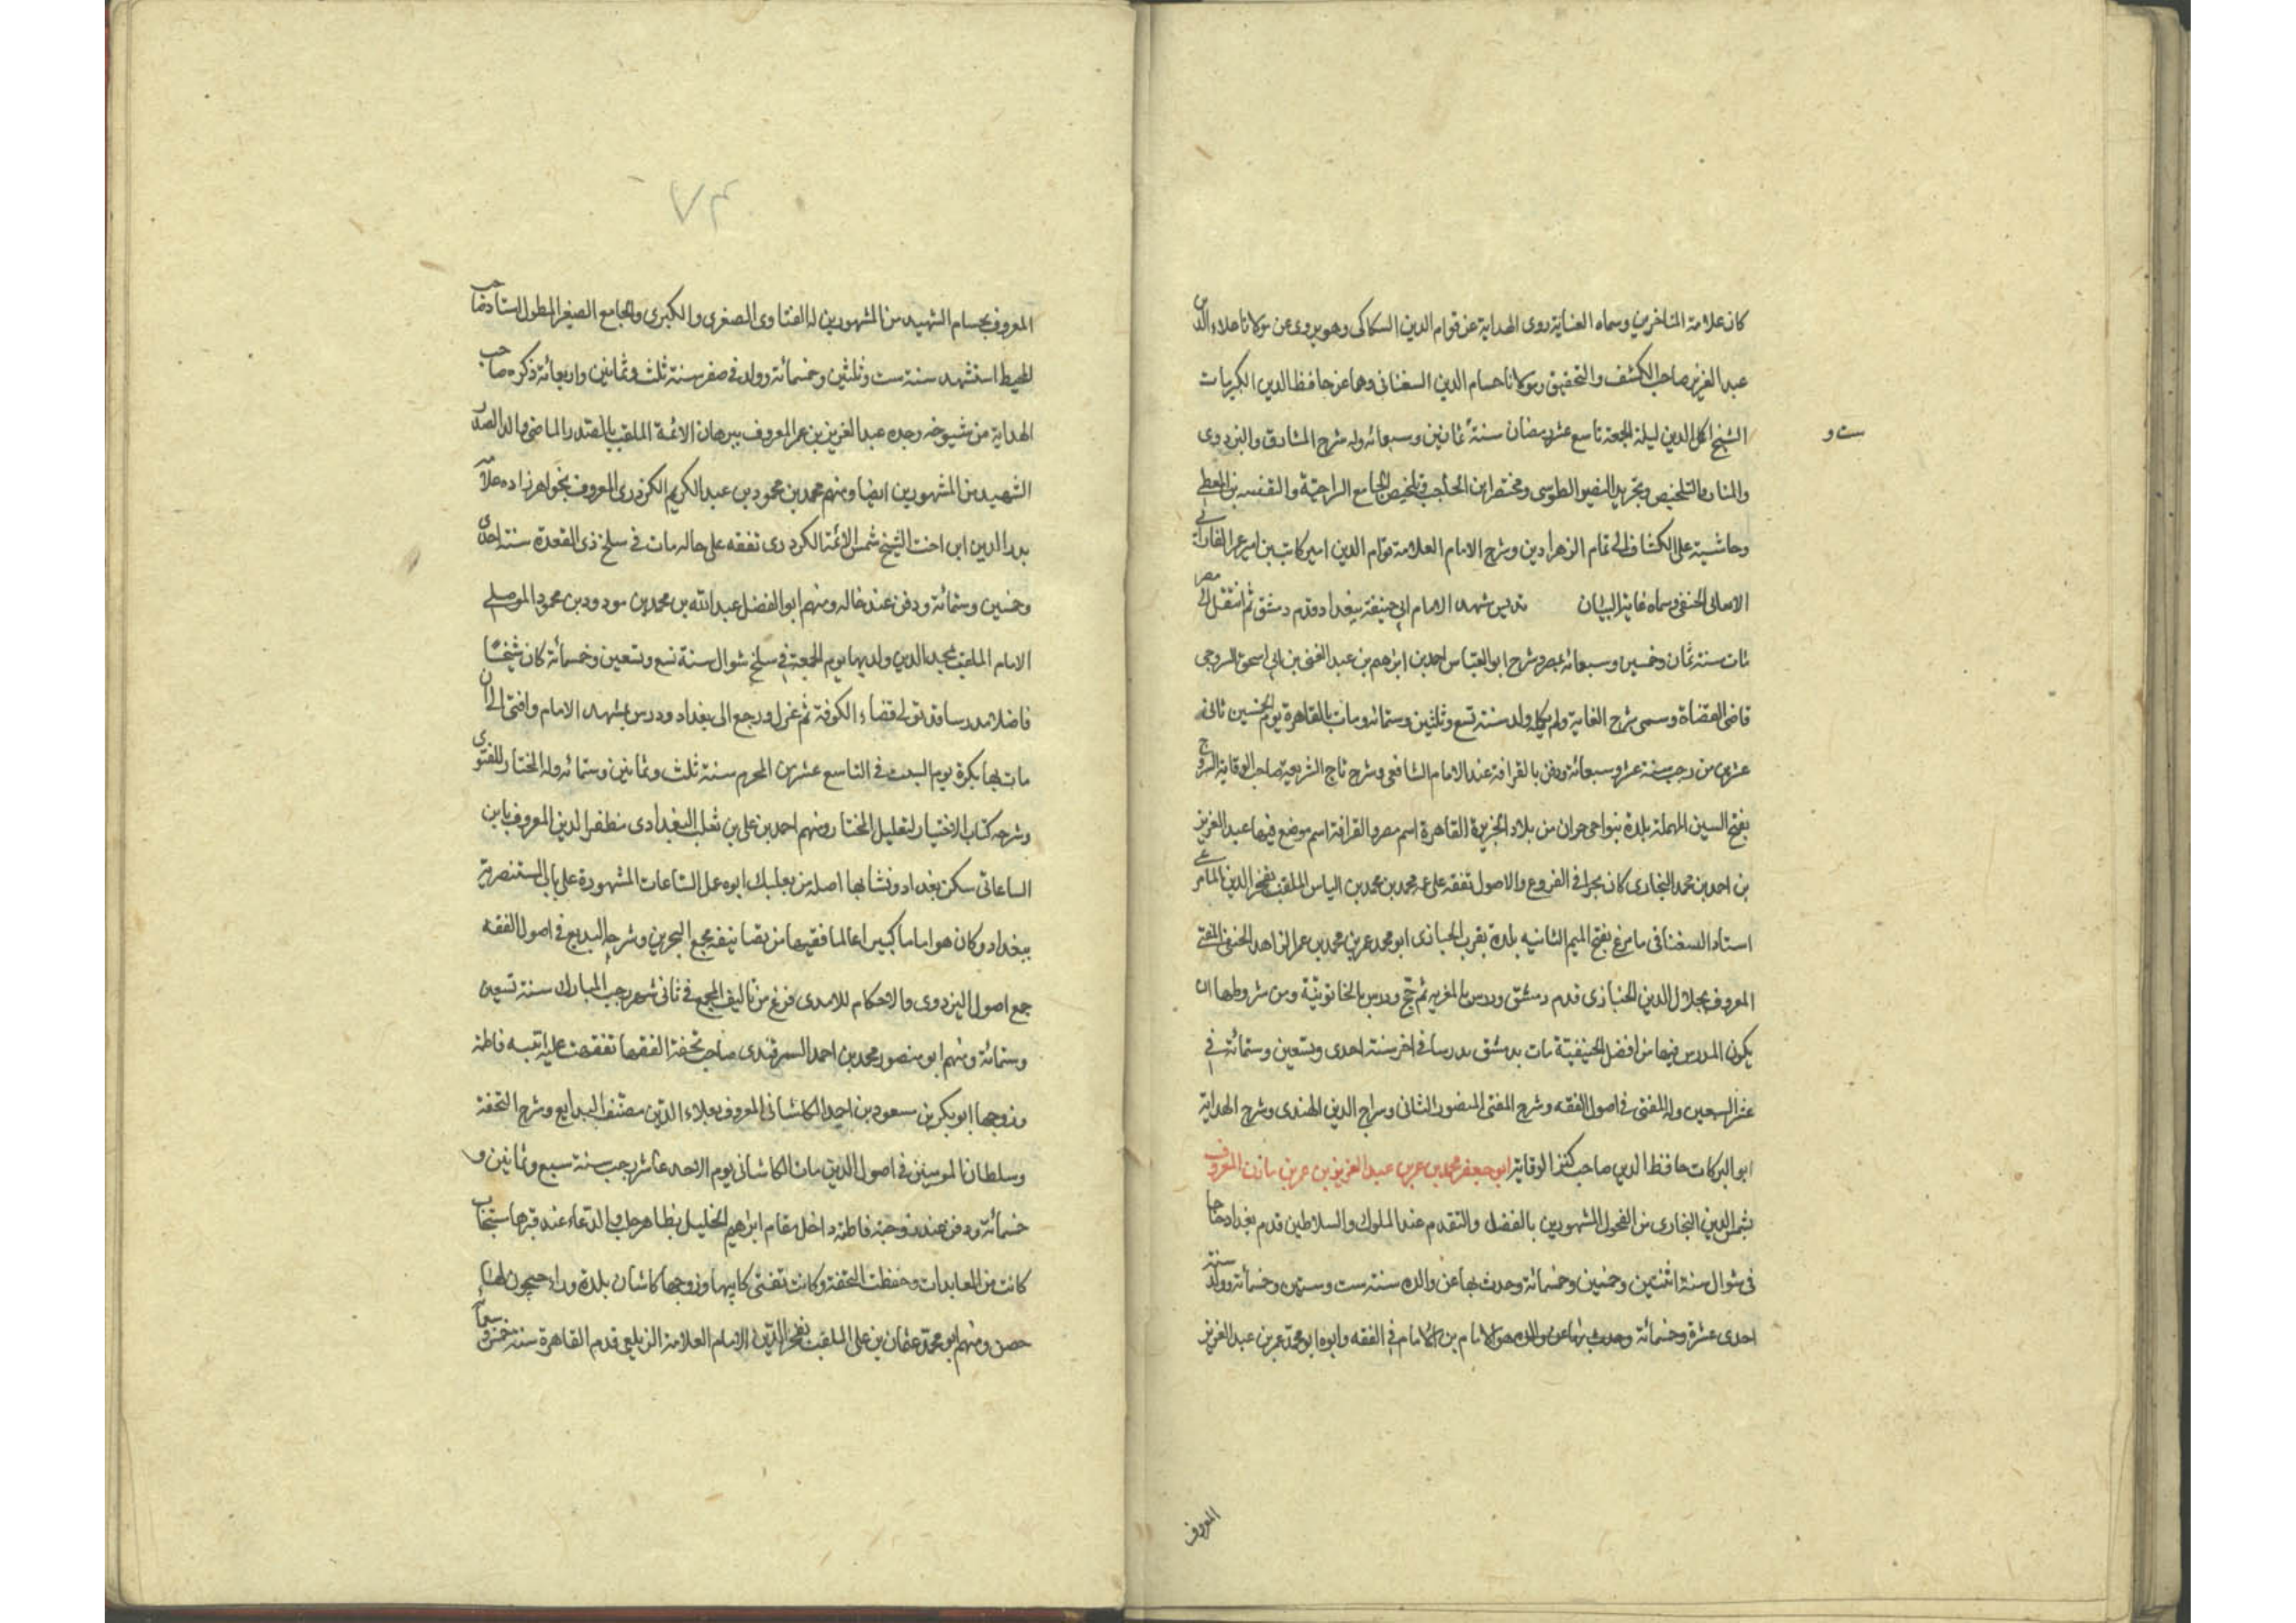 كان علامة المتاخرين وسماه العناية روى الهداية عن قوام الدين السكاكى وهو يروى عن مولانا علاء الدين
عبد العزيز صاحب الكشف والتحقيق ومولانا حسام الدين السغناقى وهما عن حافظ الدين الكبير مات
الشيخ اكمل الدين ليلة الجمعة تاسع عشر رمضان سنة ثمانين وسبعمائة وله شرح المشارق والبزدوى
ست و
والمنار والتلخيص وتجريد النصير الطوسى ومختصر ابن الحاجب وتلخيص الجامع
وحاشية على الكشاف الى تمام الزهراوين وشرح الامام العلامة قوام الدين امير كاتب بن امير عمر الفارابى
الحنفى وسماه غاية البيان مشهد الامام ابى حنيفة ببغداد وقدم دمشق ثم انتقل الى مصر
مات سنة ثمان وخمسين وسبعمائة بمصر وشرح ابو العباس احمد بن ابرهيم بن عبد الغنى بن ابى اسحق السروجى
قاضى القضاة وسمى شرح الغاية ولم يكمله ولد سنة تسع وثلثين وستمائة ومات بالقاهرة يوم الخميس ثانى
عشرى من رجب سنة عشر وسبعمائة ودفن بالقرافة عند الامام الشافعى وشرح تاج الشريعة صاحب الوقاية السروج
بفتح السين المهملة بلدة بنواحى حران من بلاد الجزيرة القاهرة اسم مصر والقرافة اسم موضع فيها عبد العزيز
بن احمد بن محمد البخارى كان بحرا فى الفروع والاصول تفقه على عمه محمد بن محمد بن الياس الملقب بفخر الدين المامرغى
استاد السغناقى مامرغ بفتح الميم الثانيه بلدة بقرب الخبازى ابو محمد عمر بن محمد بن عمر الزاهد الحنفى المفتى
المعروف بجلال الدين الخبازى قدم دمشق ودرس بالعزيه ثم حج ودرس بالخاتونية ومن شروطها ان
يكون المدرس فيها من افضل الحنيفية مات بدمشق مدرسا فى اخر سنة احدى وتسعين وستمائة فى
عشر السبعين وله المغنى فى اصول الفقه وشرح المغنى المنصور الثانى وسراج الدين الهندى وشرح الهداية
ابو البركات حافظ الدين صاحب كنز الوقاية ابو جعفر محمد بن عمر بن عبد العزيز بن عمر بن مازن المعروف
بشمس الدين البخارى من الفحول المشهورين بالفضل والتقدم عند الملوك والسلاطين قدم بغداد حاجا
فى شوال سنة اثنتين وخمسين وخمسمائة وحدث بها عن والده سنة ست وستين وخمسمائة وولد سنة
احدى عشرة وخمسمائة وحدث بها عن والده هو الامام بن الامام فى الفقه وابوه ابو محمد عمر بن عبد العزيز
المعروف
٧٣
المعروف بحسام الشهيد من المشهورين له الفتاوى الصغرى والكبرى والجامع الصغير المطول استاد صاحب
المحيط استشهد سنة ست وثلثين وخمسمائة وولد فى صفر سنة ثلث وثمانين واربعمائة ذكره صاحب
الهداية من شيوخه وجده عبد العزيز بن عمر المعروف ببرهان الائمة الملقب بالصدر الماضى والد الصدر
الشهيد من المشهورين ايضا ومنهم محمد بن محمود بن عبد الكريم الكردرى المعروف بخواهر زاده علامه
بدر الدين ابن اخت الشيخ شمس الائمة الكردرى تفقه على خاله مات فى سلخ ذى القعدة سنة احدى
وخمسين وستمائة ودفن عند خاله ومنهم ابو الفضل عبد الله بن محمد بن مودود بن محمود الموصلى
الامام الملقب بمجد الدين ولد بها يوم الجمعة فى سلخ شوال سنة تسع وتسعين وخمسمائة كان شيخا
فاضلا مدرسا قد تولى قضاء الكوفة ثم عزل ورجع الى بغداد ودرس بمشهد الامام وافتى الى ان
مات بها بكرة يوم السبت فى التاسع عشر من المحرم سنة ثلث وثمانين وستمائه وله المختار للفتوى
وشرحه كتاب الاختيار لتعليل المختار ومنهم احمد بن على بن ثعلب البغدادى مظفر الدين المعروف بابن
الساعاتى سكن بغداد ونشا بها اصله من بعلبك ابوه عمل الساعات المشهورة على باب المستنصرية
ببغداد وكان هو اماما كبيرا عالما فقيها من تصانيفه مجمع البحرين وشرحه البديع فى اصول الفقه
جمع اصول البزدوى والاحكام للامدى فرغ من تاليف المجمع فى ثانى شهر رجب المبارك سنة تسعين
وستمائة ومنهم ابو منصور محمد بن احمد السمرقندى صاحب تحفة الفقها تفقهت عليه ابنته فاطمة
وزوجها ابو بكر بن مسعود بن احمد الكاشانى المعروف بعلاء الدين مصنف البدايع وشرح التحفة
وسلطان المومنين فى اصول الدين مات الكاشانى يوم الاحد عاشر رجب سنة سبع وثمانين و
خمسمائة ودفن عند زوجته فاطمة داخل مقام ابراهيم الخليل بظاهر حلب والدعاء عند قبرها يستجاب
كانت من العابدات وحفظت التحفة وكانت تفتى كابيها وزوجها كاشان بلدة وراء جيحون لها
حصن ومنهم ابو محمد عثمان بن على الملقب بفخر الدين الامام العلامة الزيلعى قدم القاهرة سنة خمس و سبعمائة